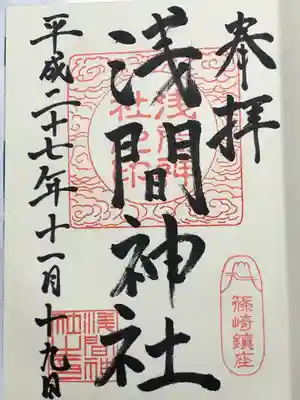 奉拝
篠崎鎮座
浅間神社
浅间神
社之印
平成二十七年十一月十九日